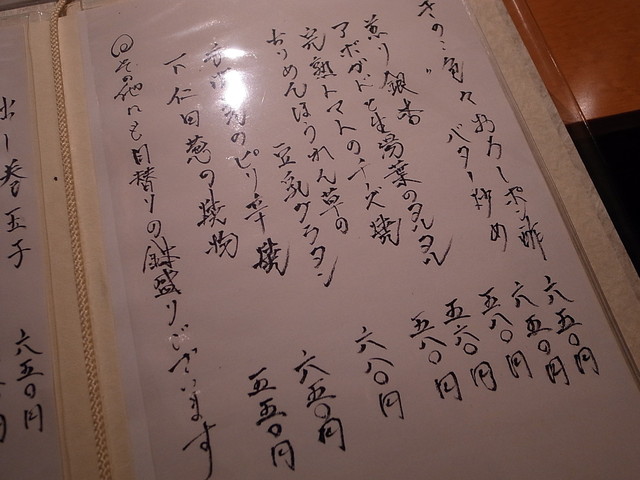 きのこ色々おろしポン酢
バター炒め
煎り銀杏
アボガドと生湯葉のタルタル
完熟トマトのチーズ焼
ちりめんほうれん草の
豆乳グラタン
のピリ辛焼
下仁田葱の焼物
@その他にも日替りの鉢盛りございます
六五〇円
六五〇円
五八〇円
五六〇円
五八〇円
六八〇円
六五〇円
五五〇円
出し巻玉子
六五〇円
円